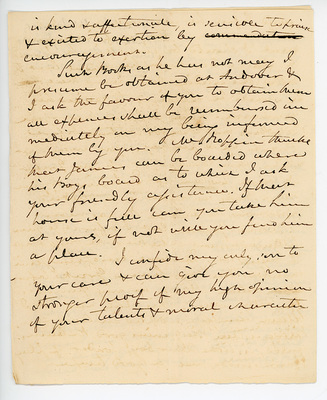 is kind & affectionate, is sensible to praise
& excited to exertion by commendation
encouragement.
Such Books as he has not may I
presume be obtained at Andover &
I ask the favour of you to obtain them
all expences shall be reimbursed im
mediately on my being informed
of them by you. Mr thinks
that James can be boarded where
his Boys board as to which I ask
your friendly assistance. If that
house is full can you take him
at yours, if not will you find him
a place. I confide my only son to
your care & can give you no
stronger proof of my high opinion
of your talents & moral character